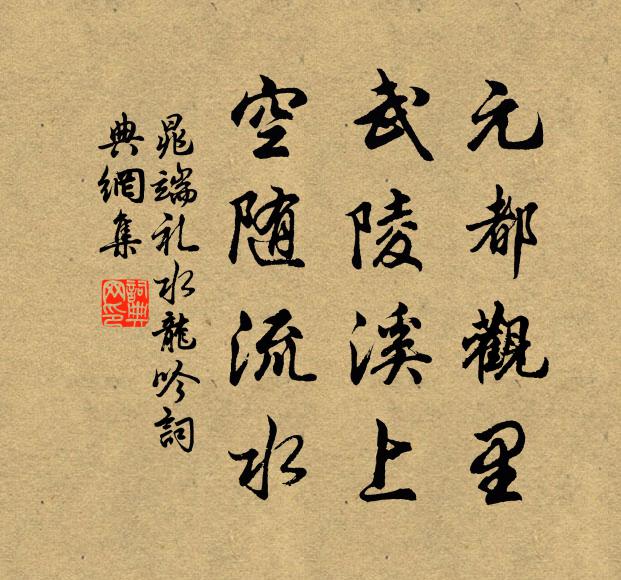 元都觀里
武陵溪上
空随流水
晁端礼水龍吟詞
典網集
詞典
网印